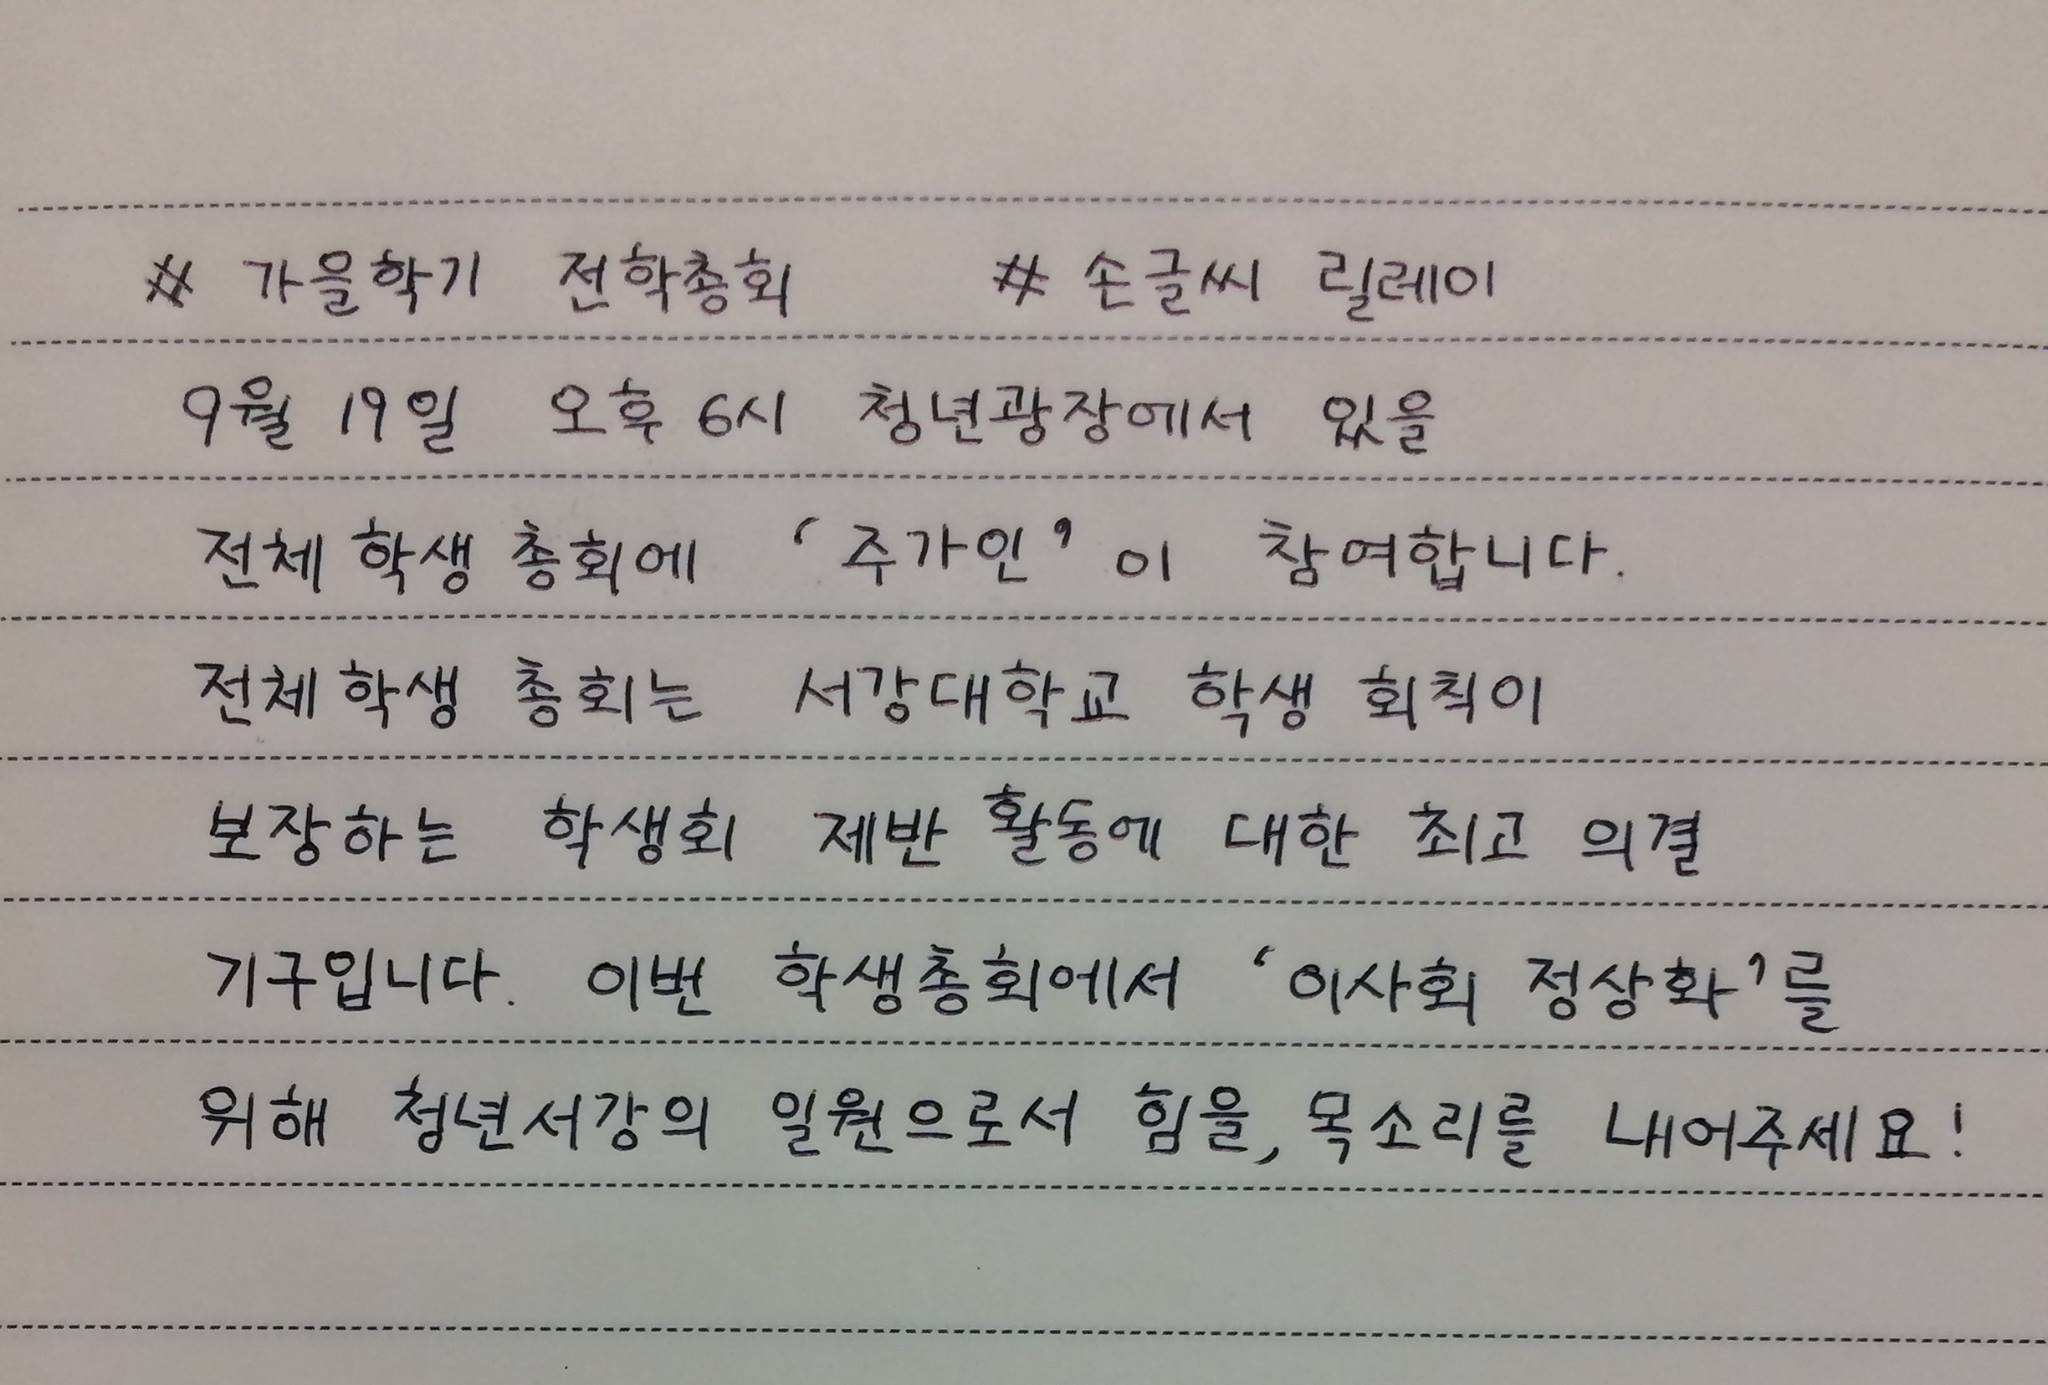 # 가을학기 전학총회 # 손글씨 릴레이
9월 19일 오후 6시 청년광장에서 있을
전체 학생 총회에 ‘주가인’이 참여합니다.
전체 학생 총회는 서강대학교 학생 회칙이
보장하는 학생회 제반 활동에 대한 최고 의결
기구입니다. 이번 학생총회에서 ‘이사회 정상화’를
위해 청년서강의 일원으로서 힘을, 목소리를 내어주세요!